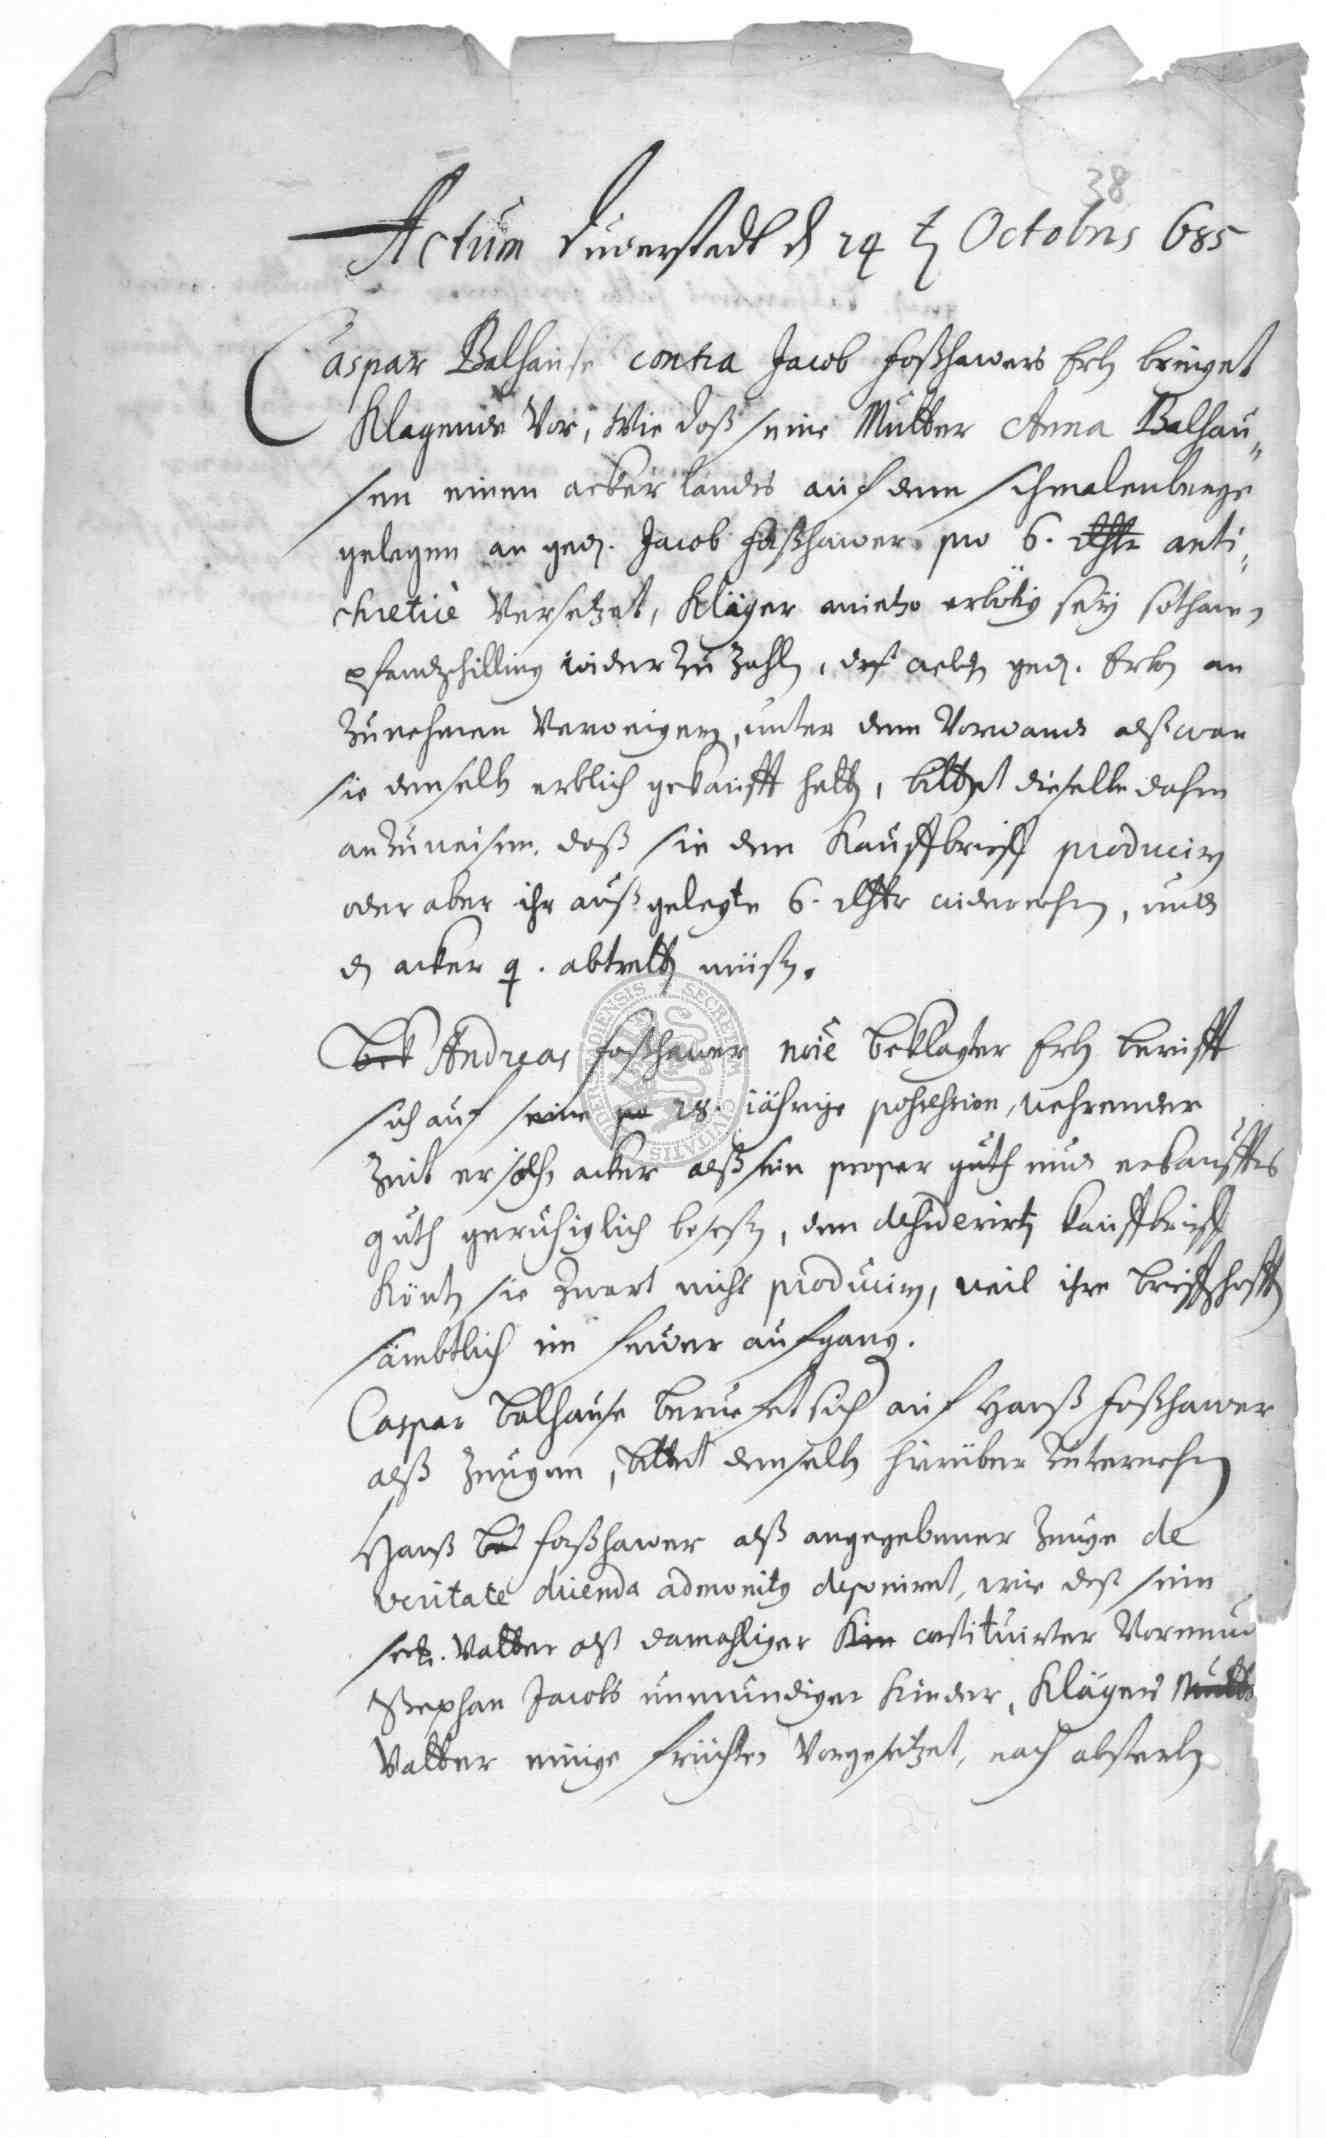 38
Actum Duderstadt d 24 t Octobris 685
Caspar Balhause contra Jacob Foßhawers Erb bringet
Klagende vor, wie daß seine Mutter Anna Balhau„
sen einen acker landes auf dem schmalenberge
gelegen an ged. Jacob Foßhawer pro 6. Rthlr anti„
chretice versetzet, Kläger anietzo erbötig sey sothanen
pfandtschilling wider zu zahlen, deß ged. Erben an
zunehmen verweigern, unter dem Vorwandt alß wan
sie denselben erblich gekaufft hetten, bittet dieselbe dahin
anzuweisen, daß sie den Kauffbrieff produciren
oder aber ihr außgelegte 6. Rthlr widernehmen, undt
d acker q. abtretten müsten.
Bek Andreas Foßhawer noie Beklagter Erben berufft
sich auf seine po 28. iährige possession, wehrender
Zeit er solchen acker alß sein proper guth und erkaufftes
guth geruhiglich besessen, den desiderirten kauffbrieff
Könten sie zwart nicht produciren, weil ihre briefschafften
sämbtlich im fewer aufgang.
Caspar Balhause beruefet sich auf Hanß Foßhawer
alß Zeugen, bittet denselben hierüber zuvernehmen
Hanß bek Foßhawer alß angegebener Zeuge de
veritate dicenda admonitus deponiret, wie daß sein
seel. Vatter alß damahliger Kin constituirter Vormund
Stephan Jacobs unmundiger Kinder, Klägers Mutter
Vatter einige früchten vorgesetzet, nach absterben
SECRETUM CIVITATIS